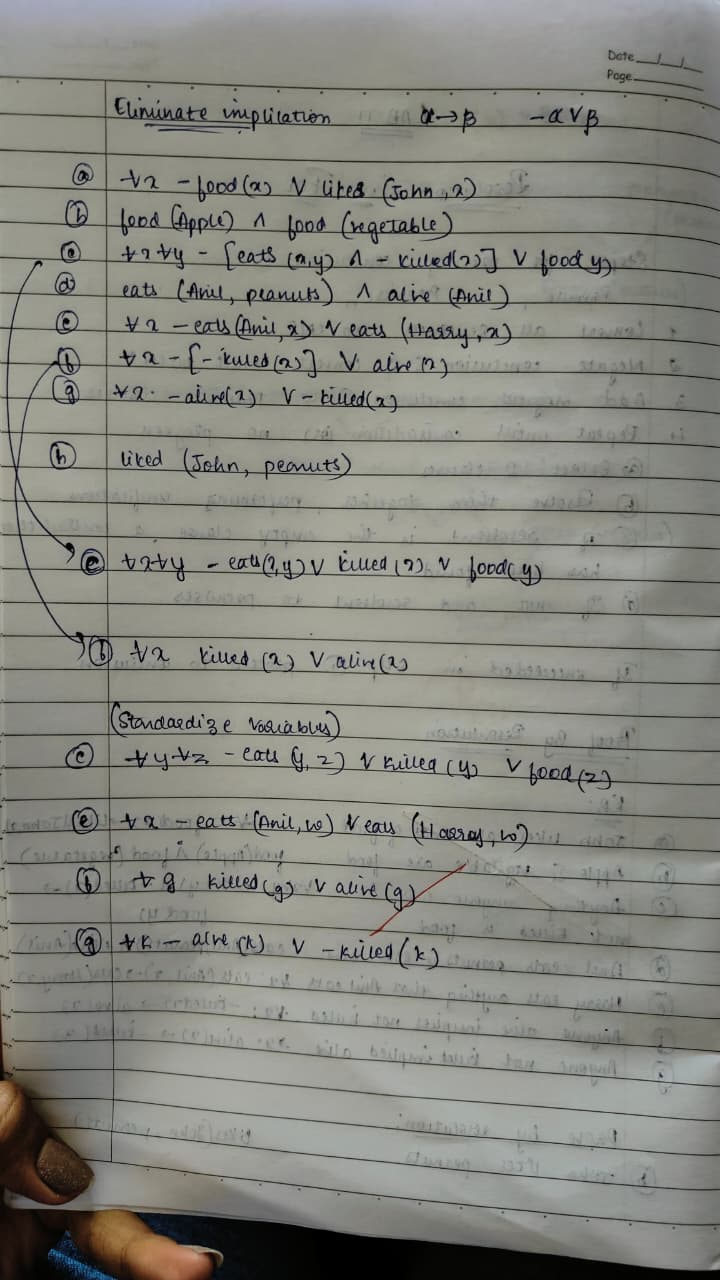 Date
Page
Eliminate implication α→β -α∨β
(a) ∀x -food(x) V likes (John, x)
(b) food (Apple) ∧ food (vegetable)
(c) ∀x∀y - [eats (x,y) ∧ - killed(x)] V food y)
(d) eats (Anil, peanuts) ∧ alive (Anil)
(e) ∀x -eats (Anil, x) V eats (Harry, x)
(f) ∀x -[- killed (x)] V alive (x)
(g) ∀x. -alive(x) V -killed(x)
(h) liked (John, peanuts)
(c) ∀x∀y - eats(x,y) V killed (x) V food(y)
(f) ∀x killed (x) V alive(x)
(Standardize variables)
(c) ∀y∀z - eats (y, z) V killed (y) V food(z)
(e) ∀x -eats (Anil, w) V eats (Harray, w)
(f) ∀g killed(g) V alive (g)
(g) ∀k - alive (k) V -killed (k)